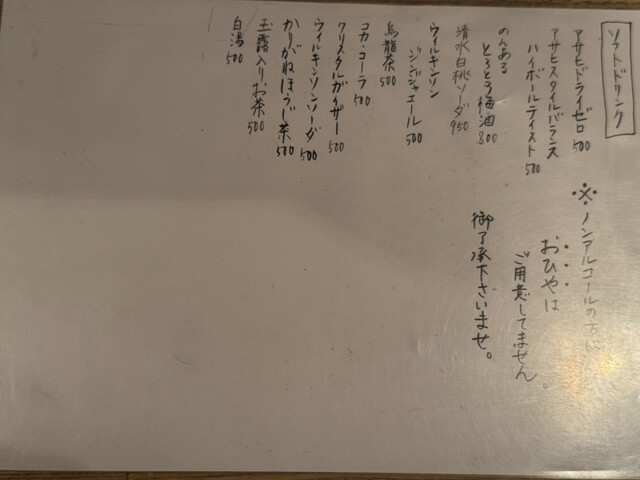 ソフトドリンク
アサヒドライゼロ 500
アサヒスタイルバランス
ハイボールテイスト 500
のんある
とろとろ梅酒 800
清水白桃ソーダ 950
ウィルキンソン
ジンジャエール 500
烏龍茶 500
コカ・コーラ 500
クリスタルガイザー 500
ウィルキンソンソーダ 500
かりがねほうじ茶 500
玉露入りお茶 500
白湯 500
※ノンアルコールの方に
おひやは
ご用意してません。
御了承下さいませ。